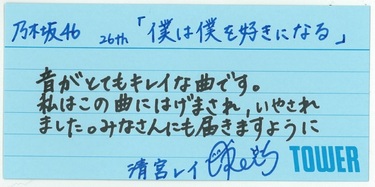 乃木坂46 26th「僕は僕を好きになる」
音がとてもキレイな曲です。
私はこの曲にはげまされ、いやされ
ました。みなさんにも届きますように
清宮レイ
TOWER